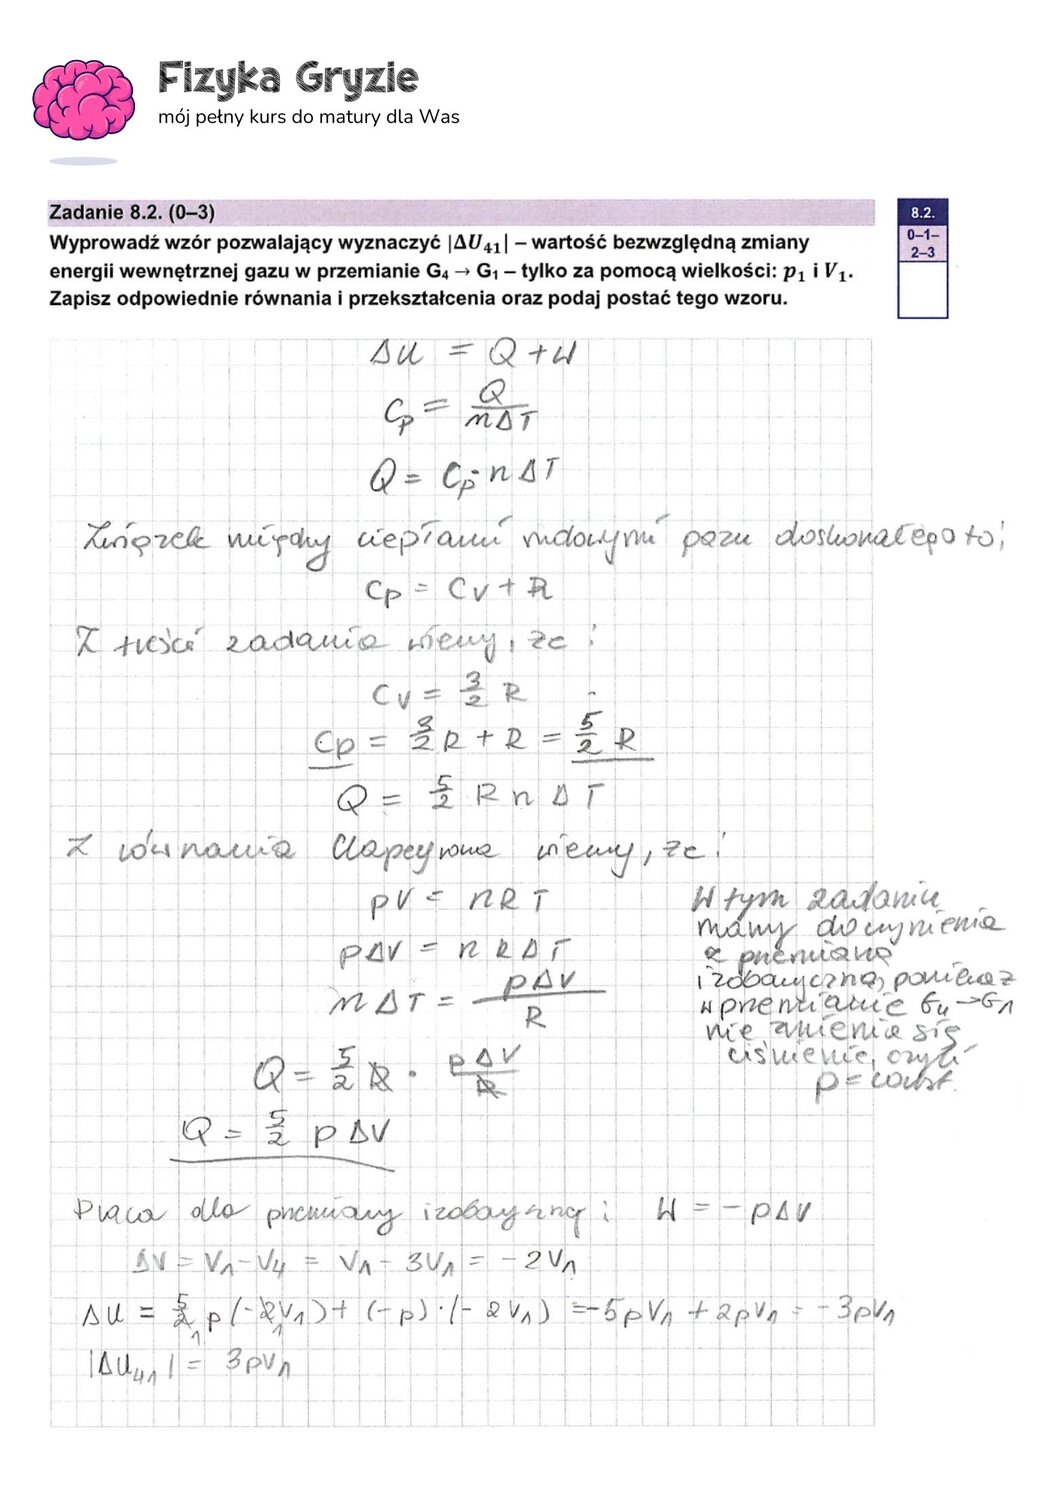 Fizyka Gryzie
mój pełny kurs do matury dla Was
Zadanie 8.2. (0–3)
8.2.
0–1–
2–3
Wyprowadź wzór pozwalający wyznaczyć |ΔU₄₁| – wartość bezwzględną zmiany
energii wewnętrznej gazu w przemianie G₄ → G₁ – tylko za pomocą wielkości: p₁ i V₁.
Zapisz odpowiednie równania i przekształcenia oraz podaj postać tego wzoru.
ΔU = Q + W
Cp = Q / nΔT
Q = Cp · n ΔT
Związek między ciepłami molowymi gazu doskonałego to:
Cp = Cv + R
Z treści zadania wiemy, że:
Cv = 3/2 R
Cp = 3/2 R + R = 5/2 R
Q = 5/2 R n ΔT
Z równania Clapeyrona wiemy, że:
pV = nRT
pΔV = nRΔT
nΔT = pΔV / R
Q = 5/2 R · pΔV / R
Q = 5/2 pΔV
W tym zadaniu
mamy do czynienia
z przemianą
izobaryczną, ponieważ
w przemianie G₄→G₁
nie zmienia się
ciśnienie, czyli
p = const.
Praca dla przemiany izobarycznej: W = −pΔV
ΔV = V₁ − V₄ = V₁ − 3V₁ = −2V₁
ΔU = 5/2 p (−2V₁) + (−p) · (−2V₁) = −5pV₁ + 2pV₁ = −3pV₁
|ΔU₄₁| = 3pV₁